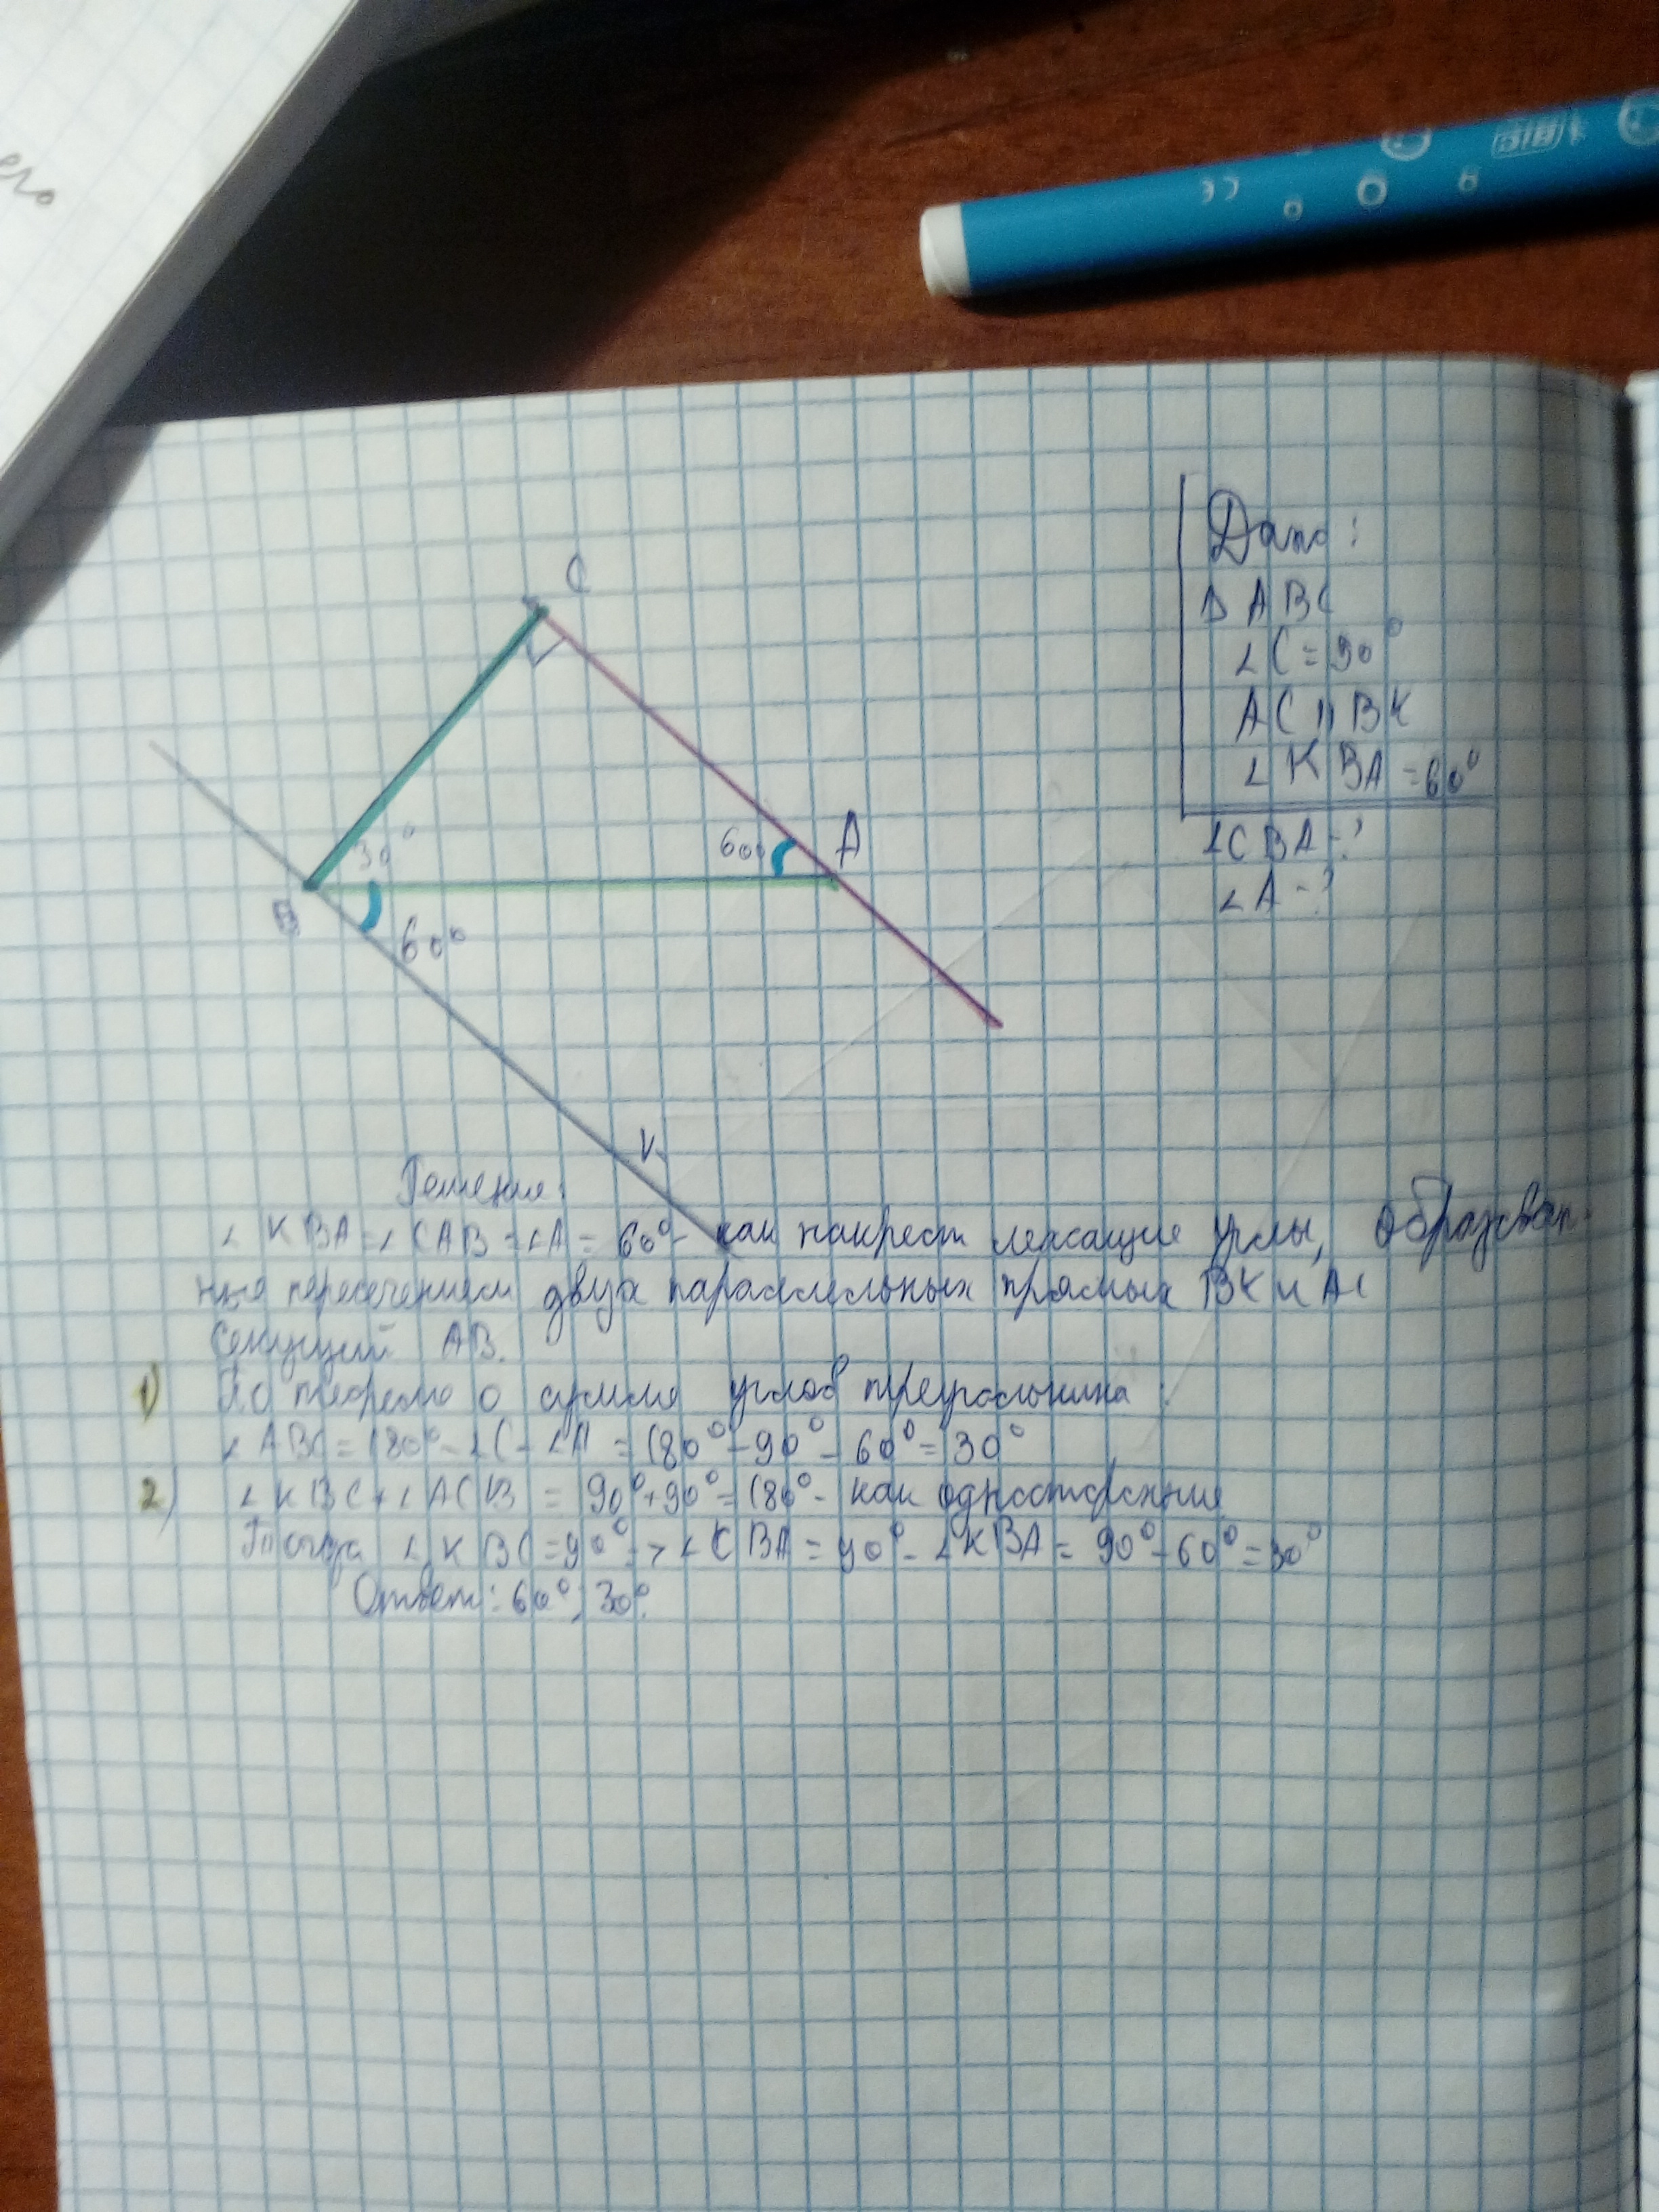 его
BIC
CE
Дано:
Δ ABC
∠C = 90°
AC || BK
∠KBA = 60°
∠CBA - ?
∠A - ?
C
30°
60°
A
B
60°
K
Решение:
∠KBA = ∠CAB = ∠A = 60° - как накрест лежащие углы, образован-
ные пересечением двух параллельных прямых BK и AC
секущий AB.
1) По теореме о сумме углов треугольника:
∠ABC = 180° - ∠C - ∠A = 180° - 90° - 60° = 30°
2) ∠KBC + ∠ACB = 90° + 90° = 180° - как односторонние
Тогда ∠KBC = 90° -> ∠CBA = 90° - ∠KBA = 90° - 60° = 30°
Ответ: 60°, 30°.